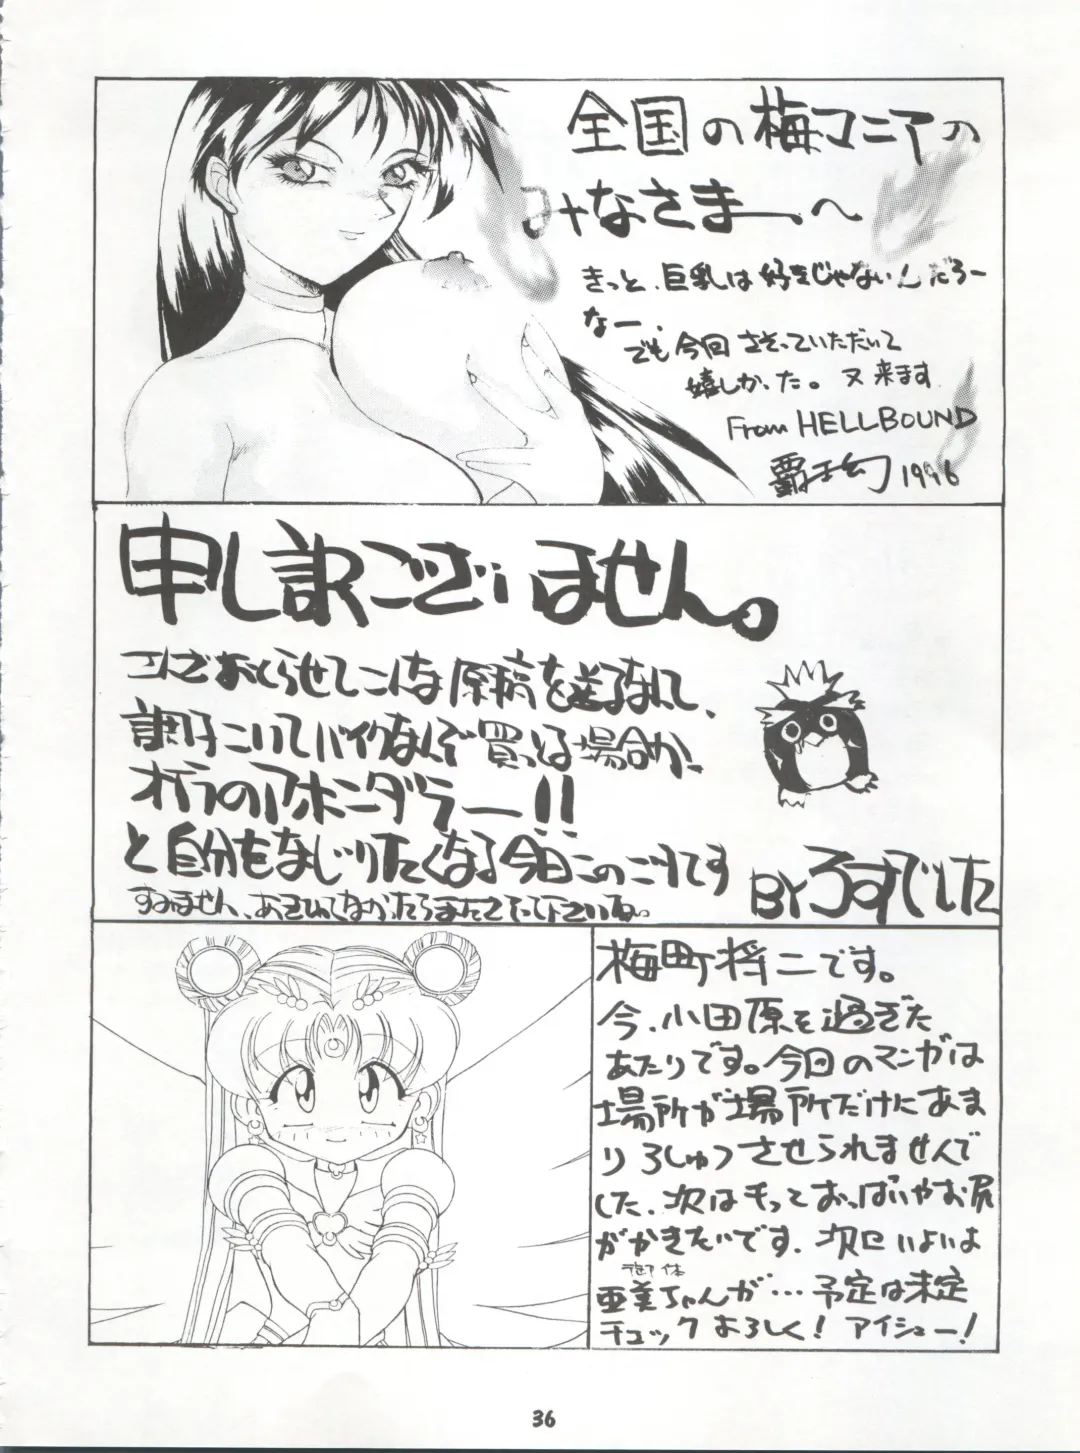 全国の梅マニアの
みなさまーへ
きっと、巨乳は好きじゃないんだろー
なー、
でも今回させていただいて
嬉しかった。又来ます
From HELLBOUND
1996
申し訳ございません。
こんだおくらせてこんな原稿を送るなんて、
調子こいてバイクなんぞ買っとる場合か、
オドラのアホンダラー!!
と自分をなじりたくなる今日このごろです
すみません、あきれてなかったらまたさそって下さいね。
BYろすでした
梅町将二です。
今、小田原を過ぎた
あたりです。今回のマンガは
場所が場所だけにあま
り ろしゅつさせられませんで
した、次はもっとおっぱいやお尻
がかきたいです、次こそいよいよ
亜美ちゃんが…予定は未定
チェックよろしく! アイシュー!
36